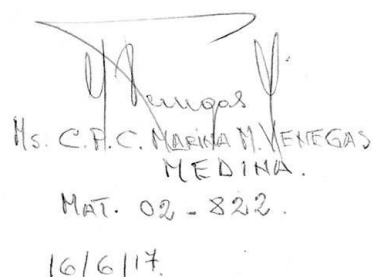 Venegas
Ms. C.P.C. MARINA M. VENEGAS
MEDINA.
MAT. 02-822.
16/6/17.